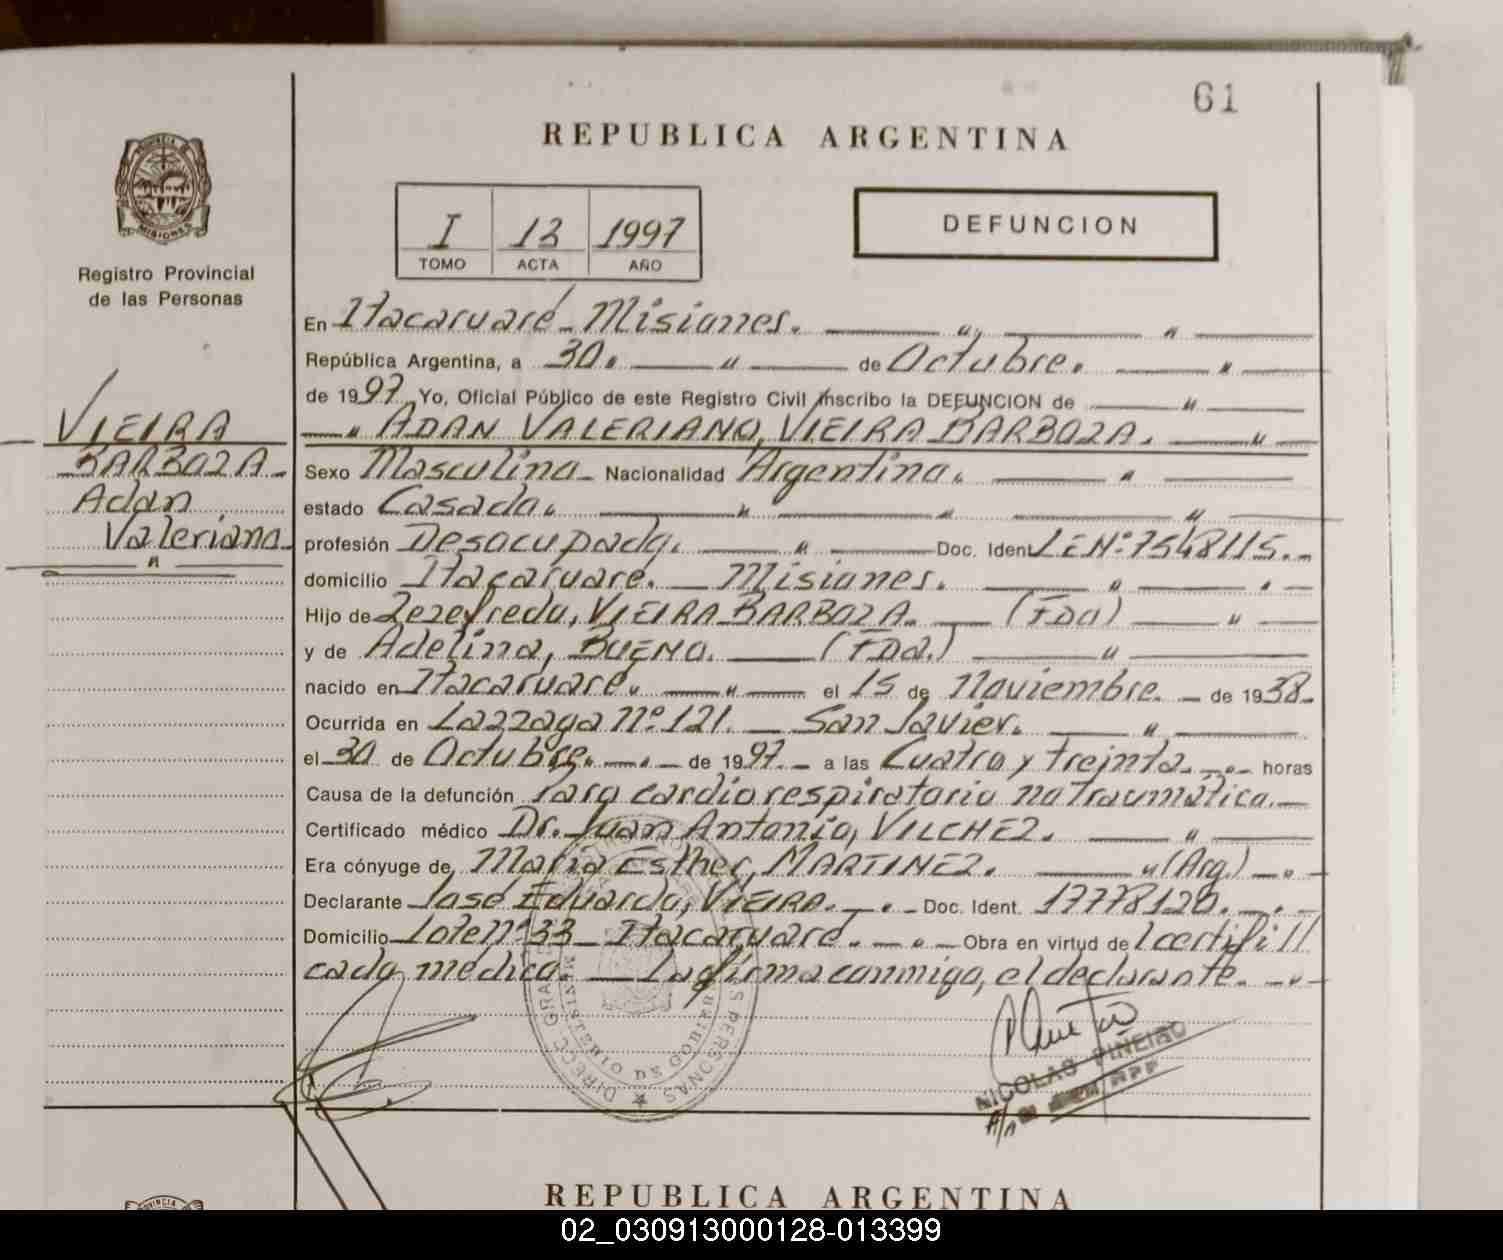 61
REPUBLICA ARGENTINA
I 13 1997
TOMO ACTA AÑO
DEFUNCION
PROVINCIA DE
MISIONES
Registro Provincial
de las Personas
VIEIRA
BARBOZA
Adán
Valeriano
En Itacaruaré - Misiones.
República Argentina, a 30. de Octubre.
de 1997 Yo, Oficial Público de este Registro Civil inscribo la DEFUNCION de
ADAN VALERIANO, VIEIRA BARBOZA.
Sexo Masculino - Nacionalidad Argentina.
estado Casado.
profesión Desocupado. Doc. Ident LE Nº: 7548115.
domicilio Itacaruare. Misiones.
Hijo de VIEIRA BARBOZA. (FDO)
y de Adelina, BUENO. (FDa.)
nacido en Itacaruare. el 15 de Noviembre. de 1938.
Ocurrida en nº 121. San Javier.
el 30 de Octubre. de 1997. a las Cuatro y treinta. horas
Causa de la defunción Paro cardiorespiratorio no traumática.
Certificado médico Dr. Juan Antonio, VILCHEZ.
Era cónyuge de, María Esther, MARTINEZ. (Arg.)
Declarante José Eduardo, VIEIRA. Doc. Ident. 17778120.
Domicilio Lote nº 33 - Itacaruaré. Obra en virtud de certifi
cado médico. La firma conmigo, el declarante.
NICOLAS PIÑEIRO
REPUBLICA ARGENTINA
02_030913000128-013399